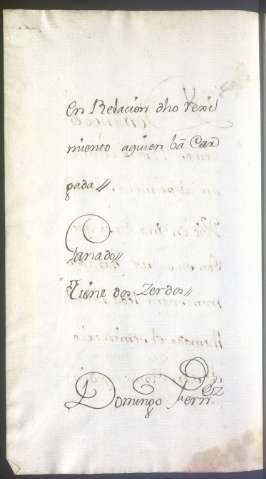 en Relacion dho Veni
miento aquien ba Car
gada //
Ganado //
Tiene dos Zerdos
Domingo Fern.dez